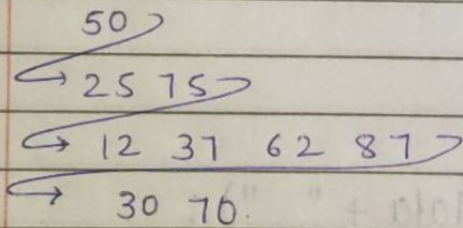 50
→ 25 75
→ 12 37 62 87
→ 30 70.